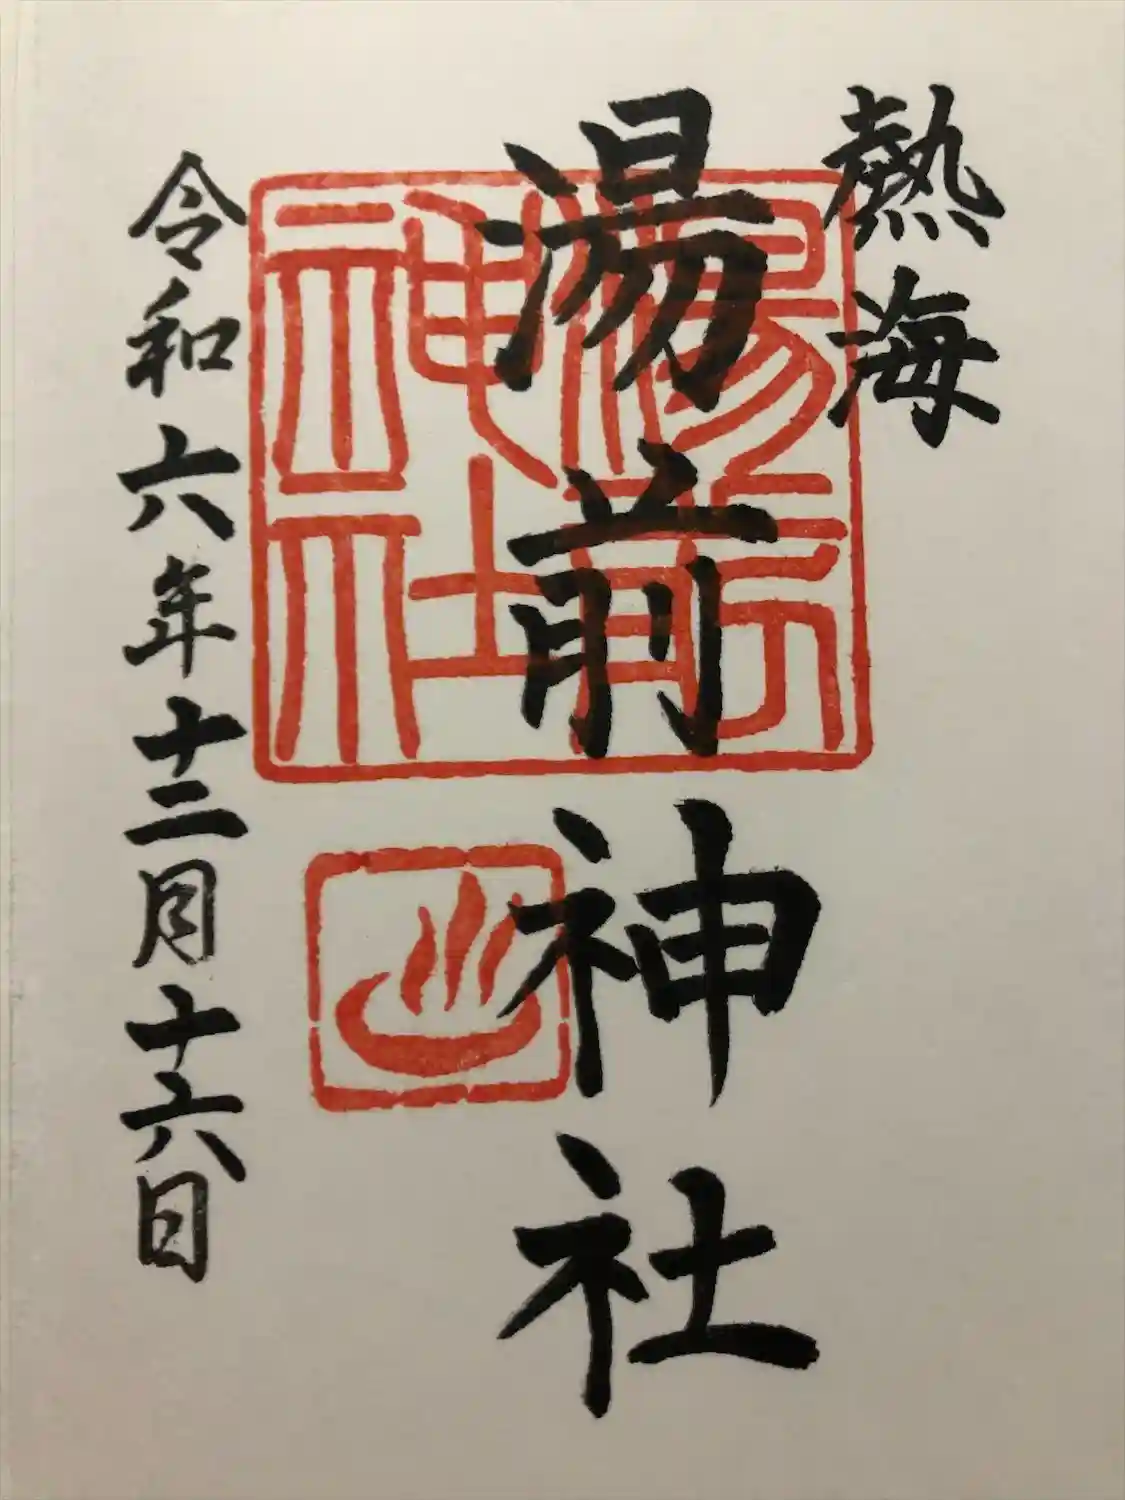 熱海
湯前神社
湯前
神社
令和六年十二月十六日